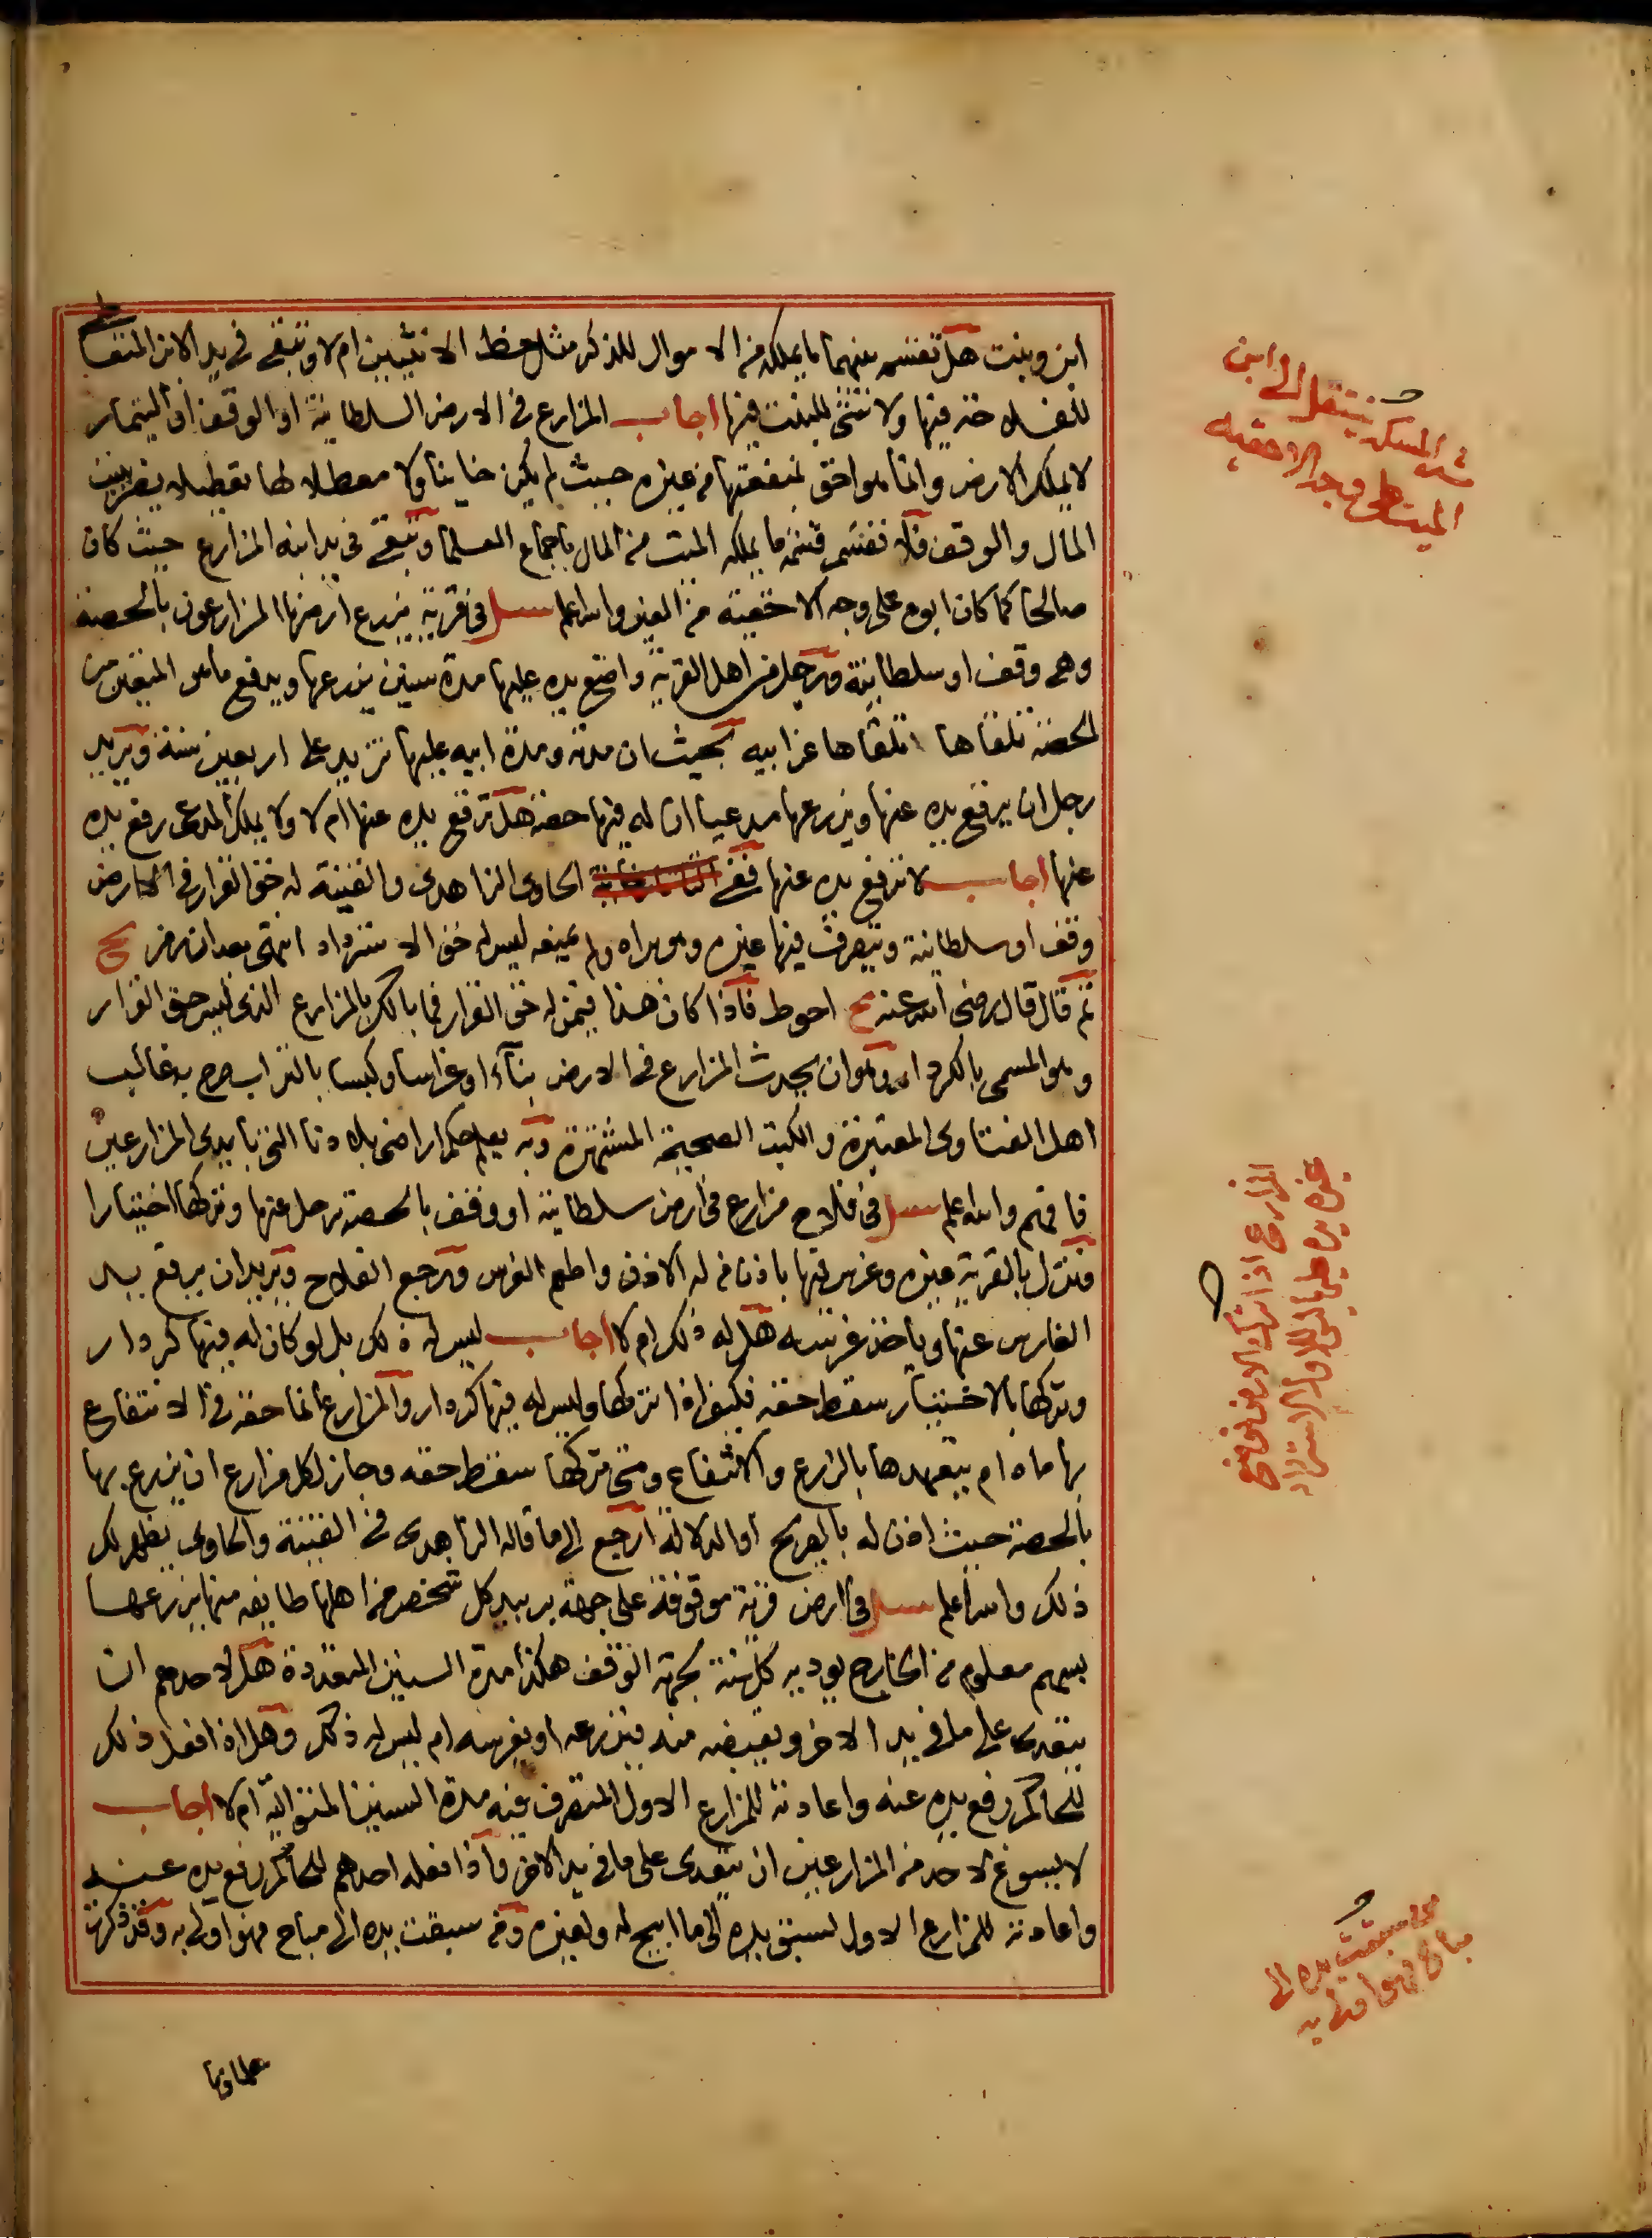 ابن وبنت هل تقسم بينهما ما يملكه من الاموال للذكر مثل حظ الانثيين ام لا وتبقى في يد الابن المتعاطي
للفلاحة فيها ولا شئ للبنت فيها اجاب المزارع في الارض السلطانية او الوقف او التيمار
لا يملك الارض وانما هو احق بمنفعتها من غيره حيث لم يكن خاينا ولا معطلا لها تعطيلا يضر ببيت
المال والوقف فلا تقسم قسمة ما يملكه الميت من المال باجماع العلما وتبقى في يد ابنه المزارع حيث كان
صالحا كما كان ابوه على وجه الاحقية من الغير والله اعلم سئل في قرية يزرع ارضها المزارعون بالحصة
وهي وقف او سلطانية ورجل من اهل القرية واضع يده عليها مدة سنين يزرعها ويدفع ما هو المتعين من
الحصة تلقاها تلقاها عن ابيه بحيث ان مدته ومدة ابيه عليها تزيد على اربعين سنة ويريد
رجل ان يرفع يده عنها ويزرعها مدعيا ان له فيها حصة هل ترفع يده عنها ام لا ولا يملك المدعي رفع يده
عنها اجاب لا ترفع يده عنها ففي الحاوي الزاهدي والقنية له حق القرار في الارض
وقف او سلطانية ويتصرف فيها غيره وهو يراه ولم يمنعه ليس له حق الاسترداد انتهى بعد ان رمز بخ
ثم قال قال رضي الله عنه احوط فاذا كان هذا فيمن له حق القرار فما بالك بالمزارع الذي ليس حق القرار
وهو المسمى بالكردار وهو ان يحدث المزارع في الارض بناء او غراسا وكبسا بالتراب صرح به غالب
اهل الفتاوى المعتبرة والكتب الصحيحة المشتهرة وبه يعلم حكم اراضي بلادنا التي بايدي المزارعين
فافهم والله اعلم سئل في فلاح مزارع في ارض سلطانية او وقف بالحصة رحل عنها وتركها اختيارا
فنزل بالقرية غيره وغرس فيها باذن من له الاذن واطعم الغرس ورجع الفلاح ويريد ان يرفع يد
الغارس عنها وياخذ غرسه هل له ذلك ام لا اجاب ليس له ذلك بل لو كان له فيها كردار
وتركها بالاختيار سقط حقه فكيف اذا تركها وليس له فيها كردار والمزارع انما حقه في الانتفاع
بها ما دام يتعهدها بالزرع والانتفاع ومتى تركها سقط حقه وجاز لكل مزارع ان يزرع بها
بالحصة حيث اذن له بالصريح او الدلالة ارجع الى ما قاله الزاهدي في القنية والحاوي يظهر لك
ذلك والله اعلم سئل في ارض قرية موقوفة على جهة بر بيد كل شخص من اهلها طايفة منها يزرعها
بسهم معلوم من الخارج يوديه كل سنة بجهة الوقف هكذا مدة السنين المتعددة هل لاحدهم ان
يتعدى على ما في يد الاخر ويقبضه منه فيزرعه او يغرسه ام ليس له ذلك وهل اذا فعل ذلك
للحاكم رفع يده عنه واعادته للمزارع الاول المتصرف فيه مدة السنين المتوالية ام لا اجاب
لا يسوغ لاحد من المزارعين ان يتعدى على ما في يد الاخر واذا فعله احدهم للحاكم رفع يده عنه
واعادته للمزارع الاول لسبق يده الى ما ابيح له ولغيره ومن سبقت يده الى مباح فهو اولى به وقد ذكرت
علماونا
ينتقل الى ابن
الميت على وجه الاحقيه
المزارع اذا ترك الارض فوضع
غيره يده عليها ليس للاول الاسترداد
من سبقت يده الى
مباح فهو اولى به